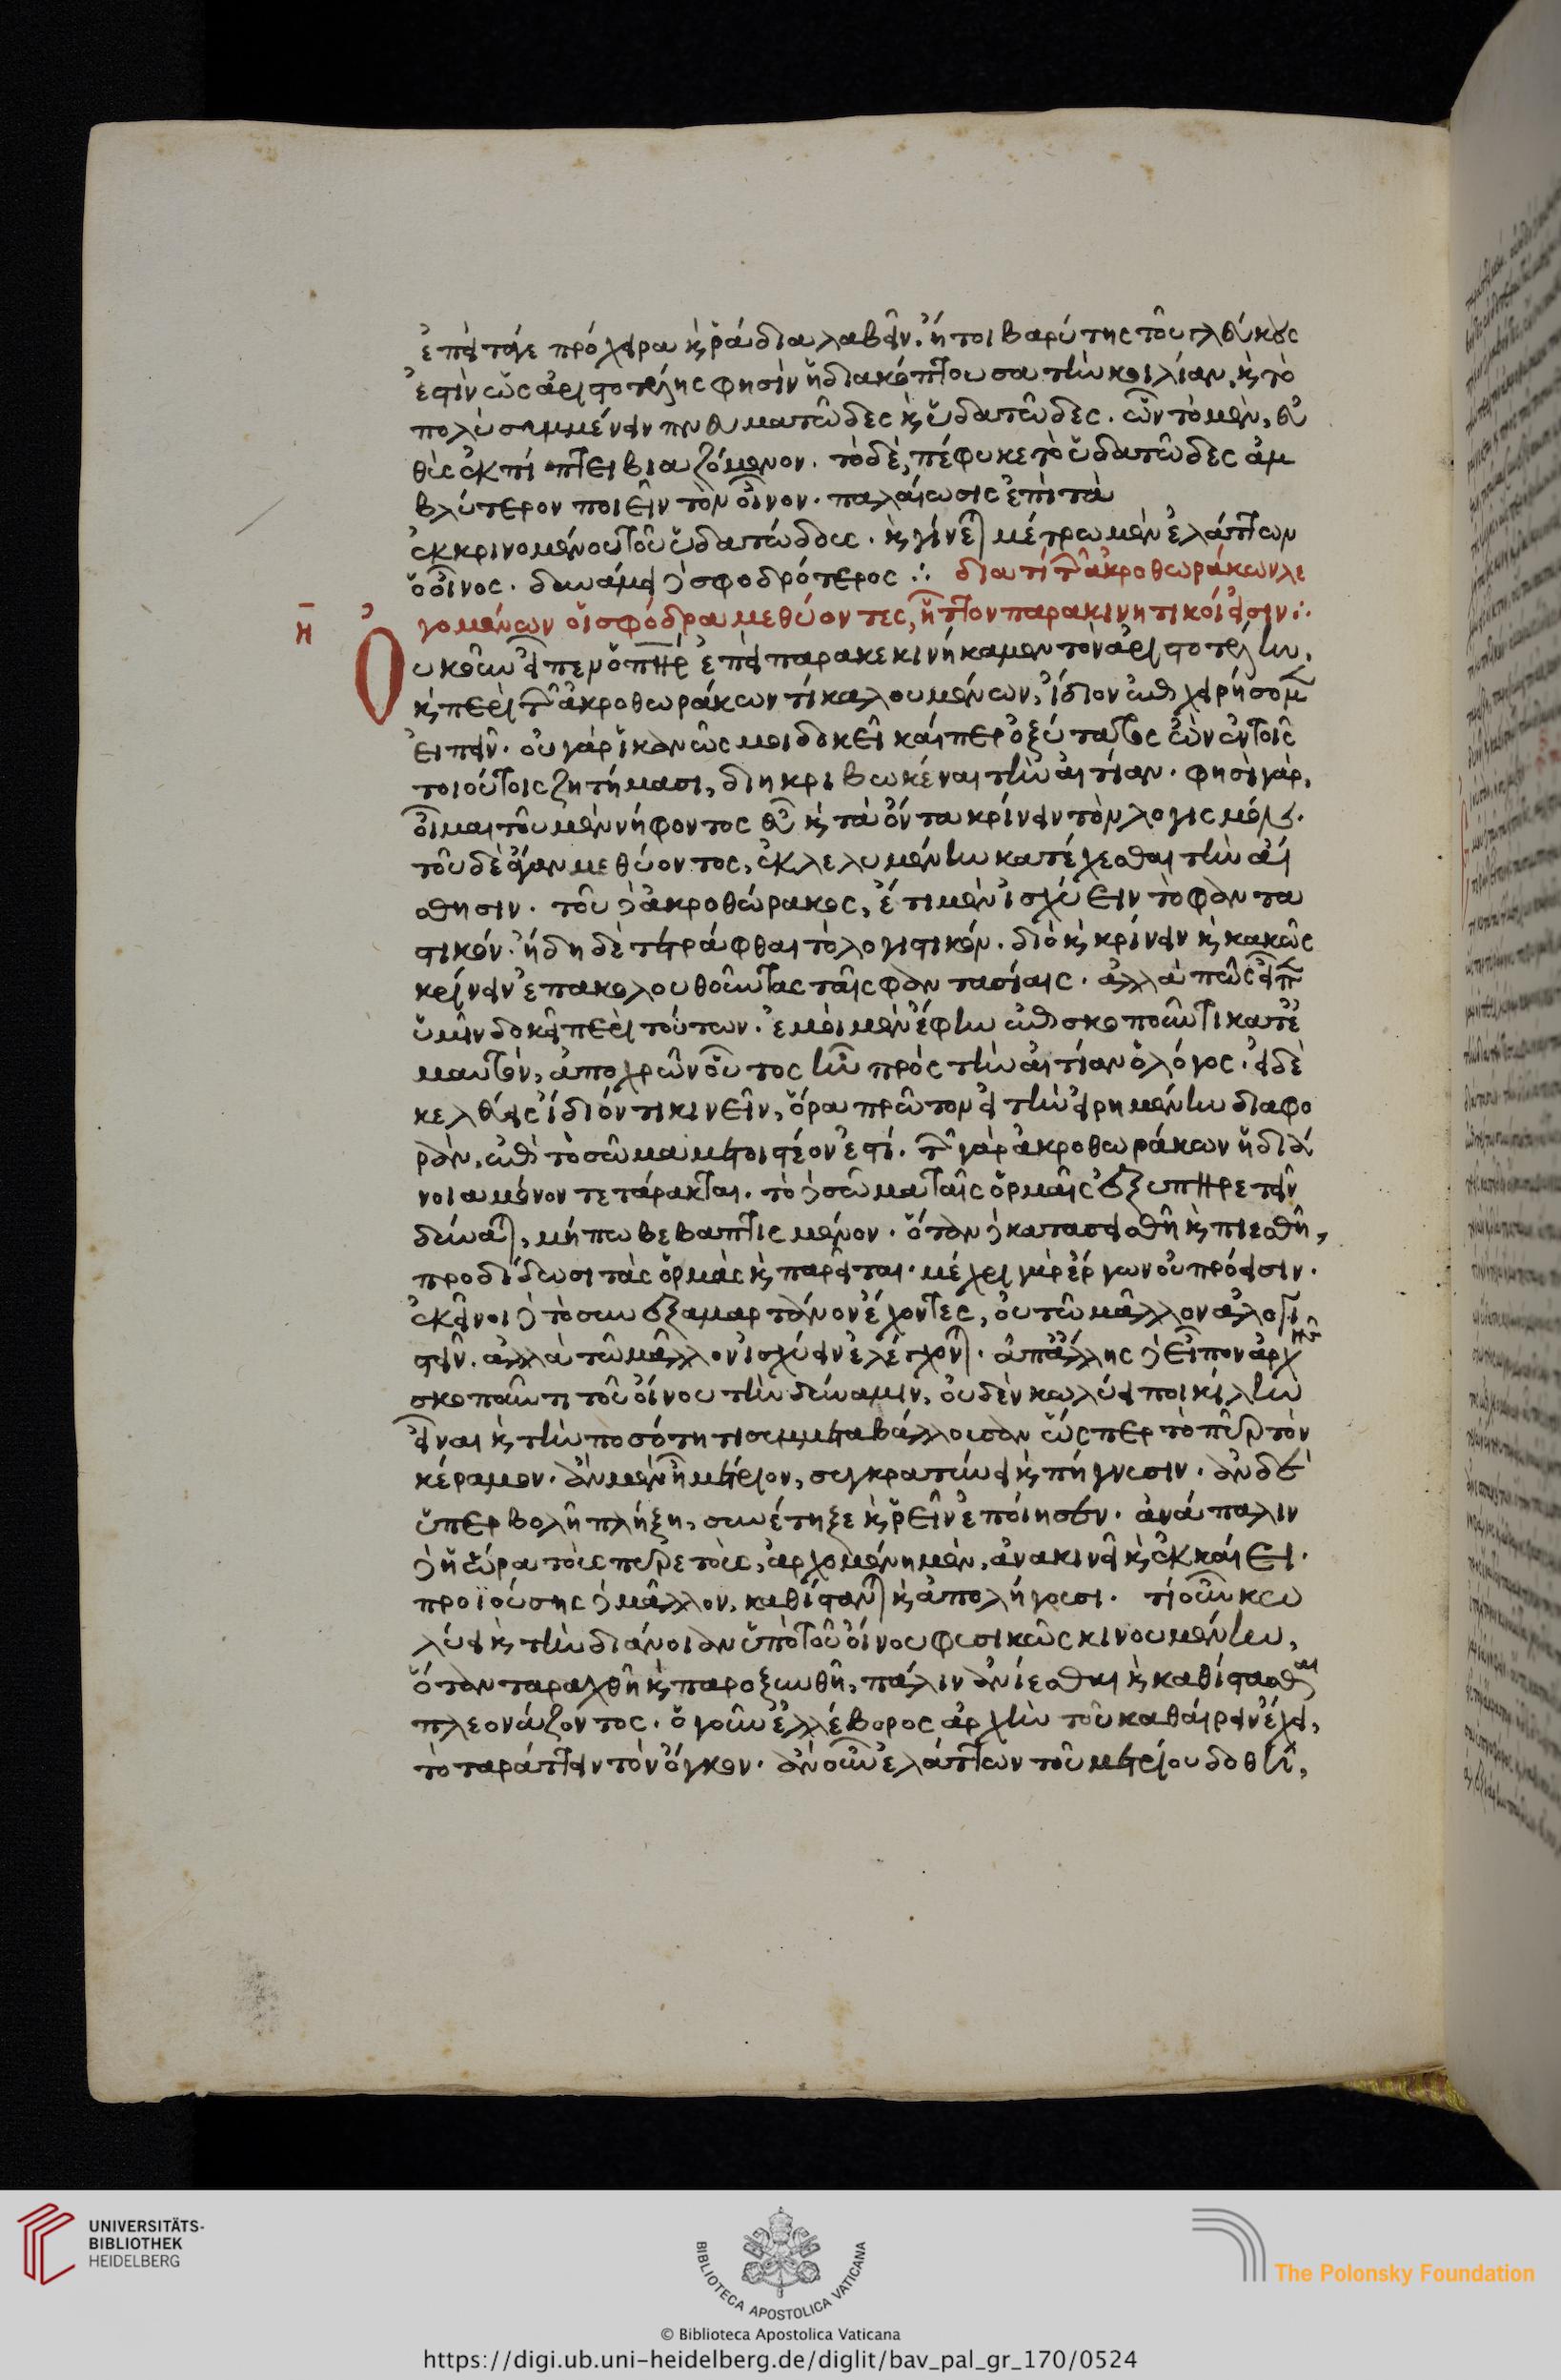 ἐπεὶ τάγε πρόχειρα καὶ ῥάδια λαβεῖν. ἤτοι βαρύτης τοῦ γλεύκους
ἐστὶν ὡς ἀριστοτέλης φησὶν ἡ διακόπτουσα τὴν κοιλίαν, καὶ τὸ
πολὺ πνευματῶδες καὶ ὑδατῶδες. ὧν τὸ μὲν, εὐ
θὺς ἐκπίπτει βιαζόμενον. τὸ δὲ, πέφυκε τὸ ὑδατῶδες ἀμ
βλύτερον ποιεῖν τὸν οἶνον. παλαίωσις ἐπὶ τὰ
ἐκκρινομένου τοῦ ὑδατώδους. καὶ γίνεται μέτρω μὲν ἐλάττων
ὁ οἶνος. δυνάμει δὲ σφοδρότερος ∴ διατί τῶν ἀκροθωράκων λε
η γομένων οἱ σφόδρα μεθύοντες, ἧττον παρακινητικοί εἰσιν ∴
Οὐκοῦν εἶπεν ὁ πατὴρ ἐπεὶ παρακεκινήκαμεν τὸν ἀριστοτέλην,
καὶ περὶ τῶν ἀκροθωράκων τί καλουμένων, ἴδιον ἐπιχειρήσομεν
εἰπεῖν. οὐ γὰρ ἱκανῶς μοι δοκεῖ καίπερ ὀξύτατος ὢν ἐν τοῖς
τοιούτοις ζητήμασι, διηκριβωκέναι τὴν αἰτίαν. φησὶ γὰρ,
οἶμαι τοῦ μὲν νήφοντος εὖ καὶ τὰ ὄντα κρίνειν τὸν λογισμόν.
τοῦ δὲ ἄγαν μεθύοντος, ἐκλελυμένην κατέχεσθαι τὴν αἴ
σθησιν. τοῦ δὲ ἀκροθώρακος, ἔτι μὲν ἰσχύειν τὸ φαντα
στικόν. ἤδη δὲ τετράφθαι τὸ λογιστικόν. διὸ καὶ κρίνειν καὶ κακῶς
κρίνειν ἐπακολουθοῦντας ταῖς φαντασίαις. ἀλλὰ πῶς εἶπεν
ὑμῖν δοκεῖ περὶ τούτων. ἐμοὶ μὲν ἔφην ἐπισκοποῦντι κατ' ἐ
μαυτὸν, ἀποχρῶν οὗτος ἦν πρὸς τὴν αἰτίαν ὁ λόγος. εἰ δὲ
κελεύεις ἴδιόν τι κινεῖν, ὅρα πρῶτον εἰ τὴν εἰρημένην διαφο
ρὰν, ἐπὶ τὸ σῶμα μετοιστέον ἐστί. τῶν γὰρ ἀκροθωράκων ἡ διά
νοια μόνον τετάρακται. τὸ δὲ σῶμα ταῖς ὁρμαῖς ἐξυπηρετεῖν
δύναται, μήπω βεβαπτισμένον. ὅταν δὲ κατασεισθῆ καὶ πιεσθῆ,
προδίδωσι τὰς ὁρμὰς καὶ παρεῖται. μέχρι γὰρ ἔργων οὐ πρόεισιν.
ἐκεῖνοι δὲ τὸ συνεξαμαρτάνον ἔχοντες, οὐ τῶ μᾶλλον ἀλογι
στεῖν. ἀλλὰ τῶ μᾶλλον ἰσχύειν ἐλέγχονται. ἀπ' ἄλλης δὲ εἶπον ἀρχῆς
σκοποῦντι τοῦ οἴνου τὴν δύναμιν, οὐδὲν κωλύει ποικίλην
εἶναι καὶ τὴν ποσότητι συμμεταβάλλουσαν ὥσπερ τὸ πῦρ τὸν
κέραμον. ἂν μὲν ἦ μέτριον, συγκρατύνει καὶ πήγνυσιν. ἂν δὲ
ὑπερβολῆ πλήξη, συνέτηξε καὶ ῥεῖν ἐποίησεν. ἀνάπαλιν
δὲ ἡ ὥρα τοὺς πυρετοὺς, ἀρχομένη μὲν, ἀνακινεῖ καὶ ἐκκαίει.
προϊούσης δὲ μᾶλλον, καθίστανται καὶ ἀπολήγουσι. τί οὖν κω
λύει καὶ τὴν διάνοιαν ὑπὸ τοῦ οἴνου φυσικῶς κινουμένην,
ὅταν ταραχθῆ καὶ παροξυνθῆ, πάλιν ἀνίεσθαι καὶ καθίστασθαι
πλεονάζοντος. ὁ γοῦν ἐλλέβορος ἀρχὴν τοῦ καθαίρειν ἔχει,
τὸ ταράττειν τὸν ὄγκον. ἂν οὖν ἐλάττων τοῦ μετρίου δοθῆ,
UNIVERSITÄTS-
BIBLIOTHEK
HEIDELBERG
BIBLIOTECA APOSTOLICA VATICANA
The Polonsky Foundation
© Biblioteca Apostolica Vaticana
https://digi.ub.uni-heidelberg.de/diglit/bav_pal_gr_170/0524